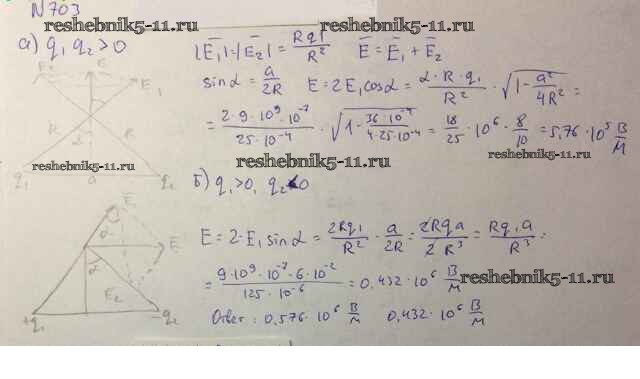 N 703
www.reshebnik5-11.ru
www.reshebnik5-11.ru
а) q₁ q₂ > 0
|E₁| = |E₂| = Rq₁/R²   E = E₁ + E₂
sinα = a/2R   E = 2E₁cosα = 2·R·q₁/R² · √(1 - a²/4R²) =
= 2·9·10⁹·10⁻⁷/25·10⁻⁴ · √(1 - 36·10⁻⁴/4·25·10⁻⁴) = 18/25 · 10⁶ · 8/10 = 5,76·10⁵ В/м
E₂ E E₁
R α R
q₁ a q₂
reshebnik5-11.ru
reshebnik5-11.ru
б) q₁ > 0, q₂ < 0
E = 2·E₁ sinα = 2Rq₁/R² · a/2R = 2Rqa/2R³ = Rq₁a/R³ =
= 9·10⁹·10⁻⁷·6·10⁻²/125·10⁻⁶ = 0,432·10⁶ В/м
reshebnik5-11.ru
Ответ: 0,576·10⁶ В/м   0,432·10⁶ В/м
E₁
α E
α
E₂
+q₁ -q₂
reshebnik5-11.ru